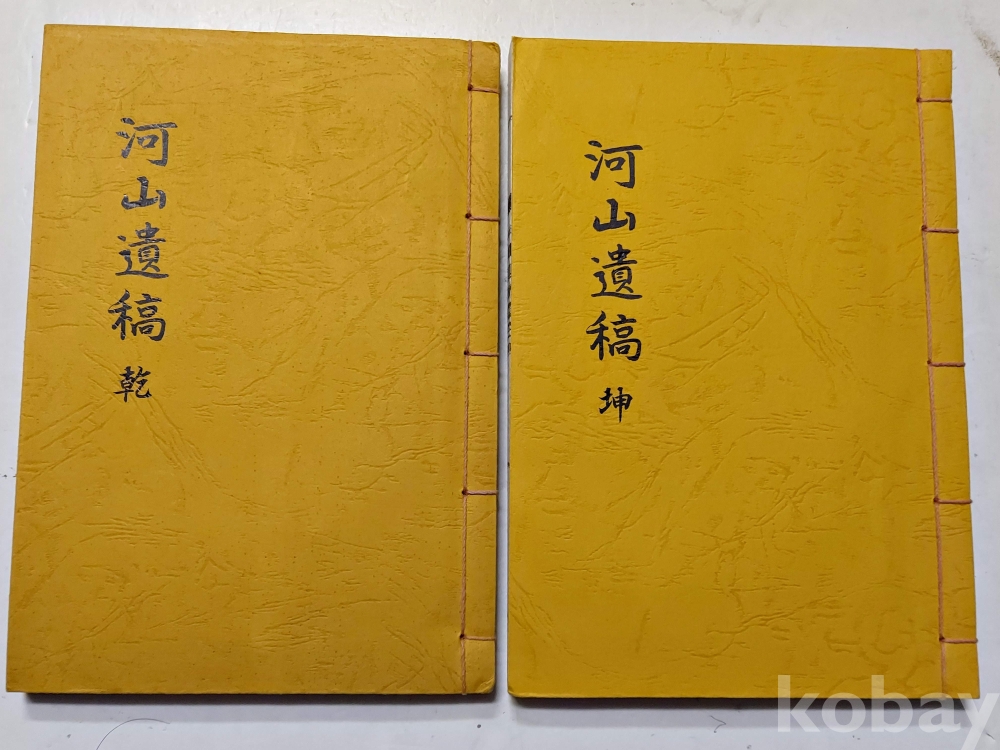 河山遺稿 乾
河山遺稿 坤
kobay